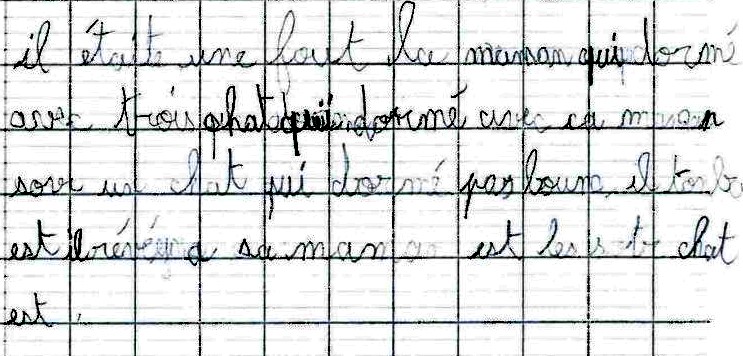 il étaite une fout la maman qui dormé
avec trois chat qui dormé avec ca maman
un chat qui dormé pas boum il tonbe
est il révéya sa maman est les chat
est